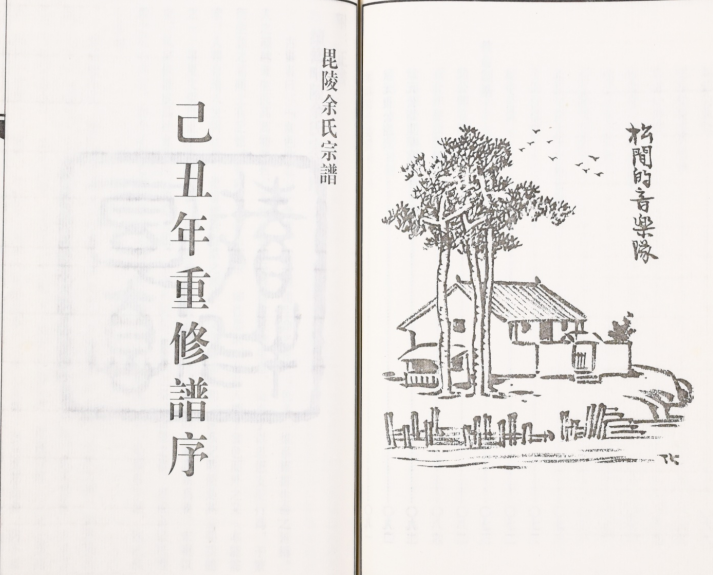 毘陵余氏宗譜
己丑年重修譜序
松間的音樂隊
TK